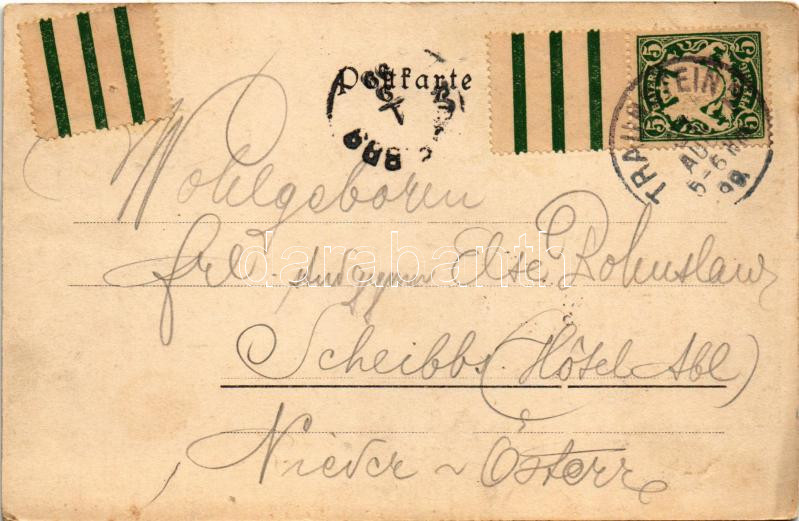 Postkarte
5 5
BAYERN
5 5
TRAUNSTEIN
AUG
5-6 N
99.
Wohlgeboren
Frl. Else Rohuslaw
Scheibbs (Hôtel Abl)
Nieder ~ Österr
darabanth